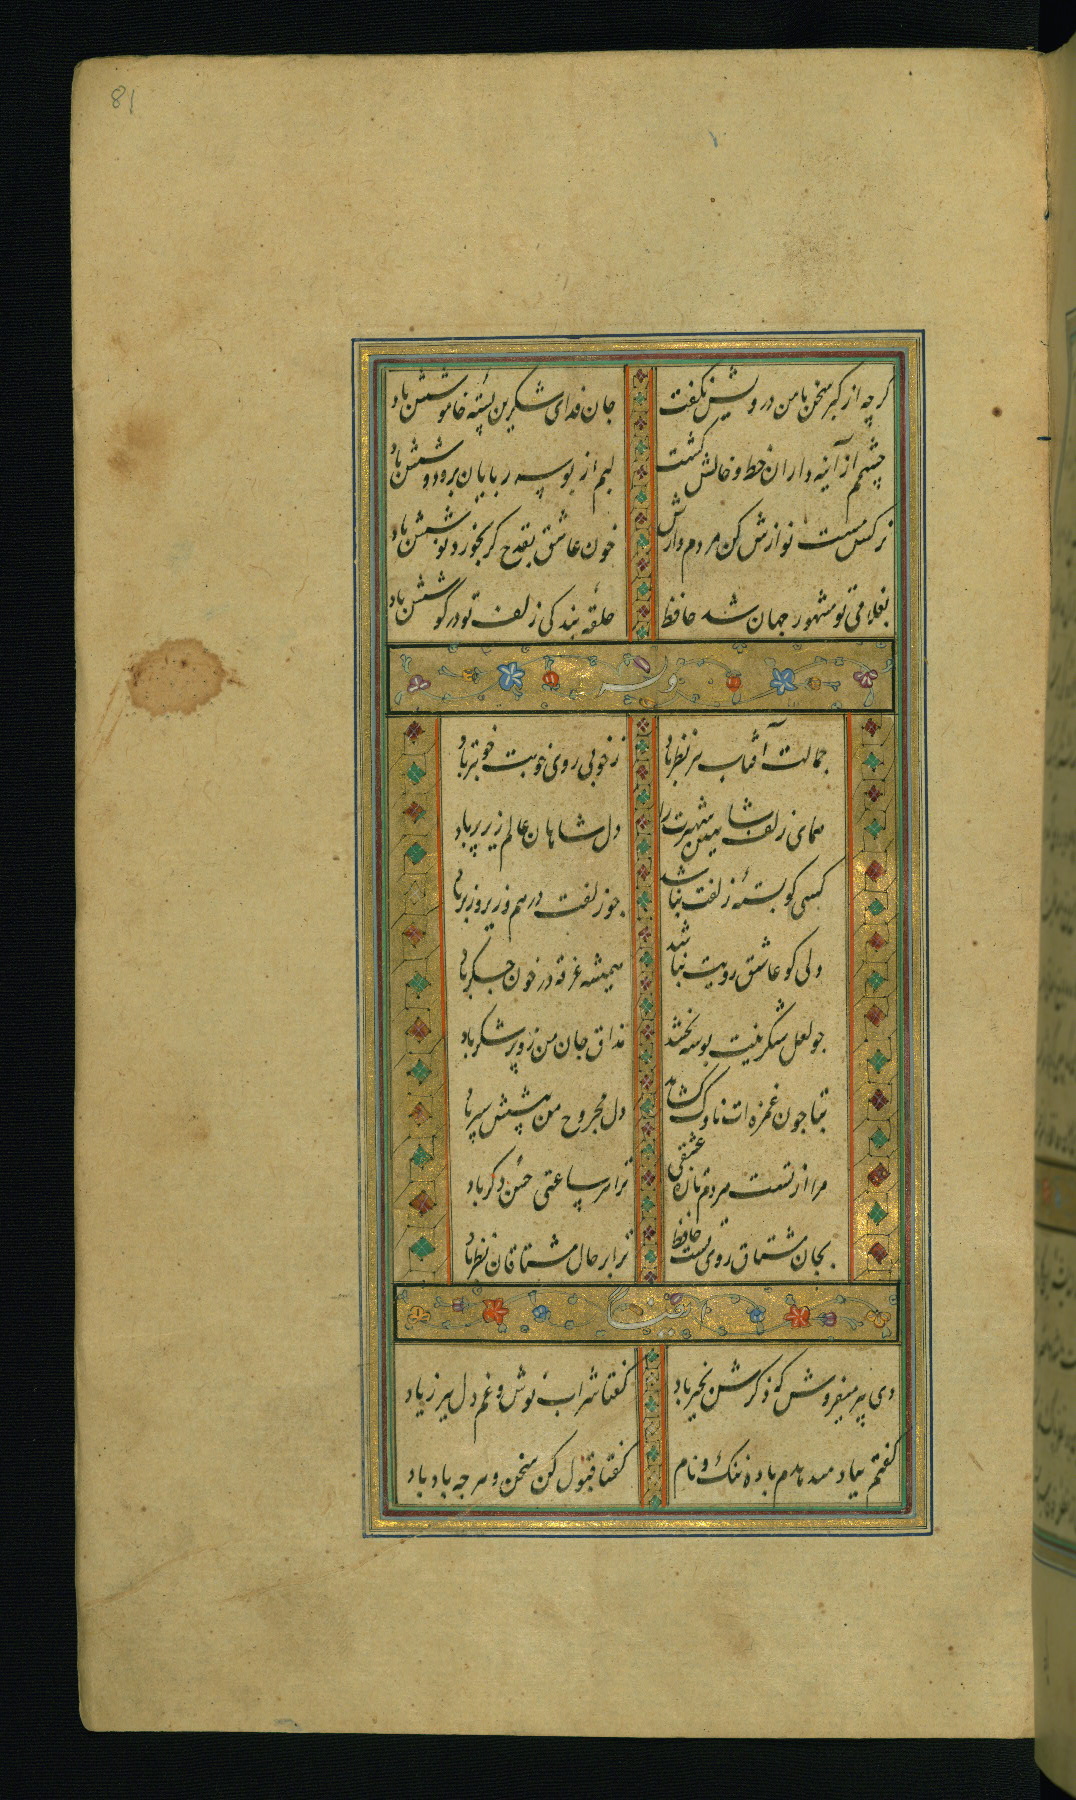 81
کرچه از کبر سخن با من درویش نکفت جان فدای شکرین پسته خاموشش باد
چشمم از آینه داران خط و خالش کشت لبم از بوسه ربایان برودوشش باد
نرکس مست نوازش کن مردم دارش خون عاشق بقدح کر بخورد نوشش باد
بغلامی تو مشهور جهان شد حافظ حلقه بندکی زلف تو در کوشش باد
وله
جمالت آفتاب هر نظر باد ز خوبی روی خوبت خوبتر باد
همای زلف شاهین شهپرت را دل شاهان عالم زیر پر باد
کسی کو بستهٔ زلفت نباشد چو زلفت درهم و زیر و زبر باد
دلی کو عاشق رویت نباشد همیشه غرقه در خون جکر باد
چو لعل شکرینت بوسه بخشد مذاق جان من زو پر شکر باد
بتا چون غمزه ات ناوک کشاید دل مجروح من پیشش سپر باد
مرا از تست هر دم تازه عشقی ترا هر ساعتی حسن دکر باد
بجان مشتاق روی تست حافظ ترا بر حال مشتاقان نظر باد
ایضا
دی پیر میفروش که ذکرش بخیر باد کفتا شراب نوش و غم دل ببر ز یاد
کفتم بباد میدهدم باده ننک و نام کفتا قبول کن سخن و هرچه باد باد